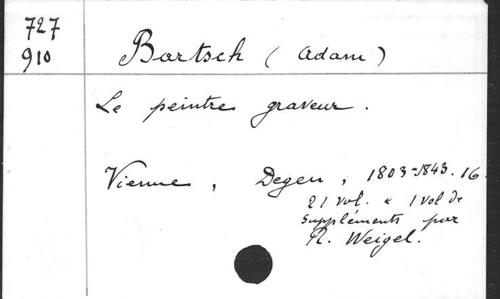 727
910
Bartsch (Adam)
Le peintre graveur.
Vienne, Degen, 1803-1843. 16
21 vol. & 1 vol de
Suppléments par
R. Weigel.